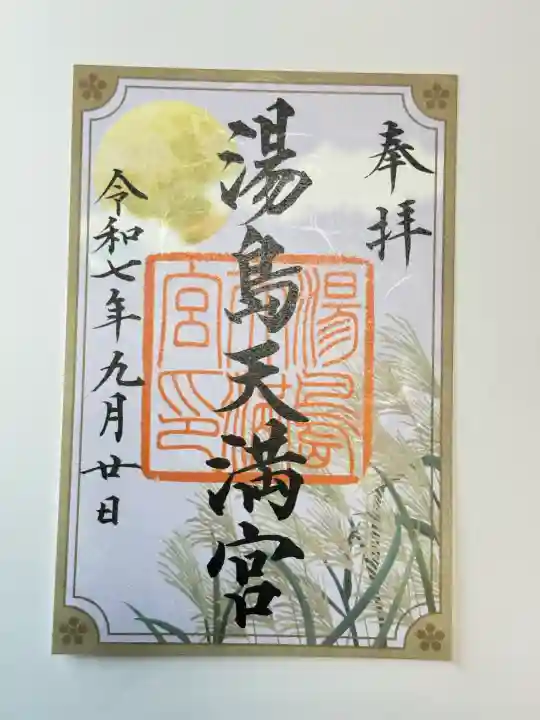 奉拝
湯島天満宮
湯島
天満
宮印
令和七年九月廿日